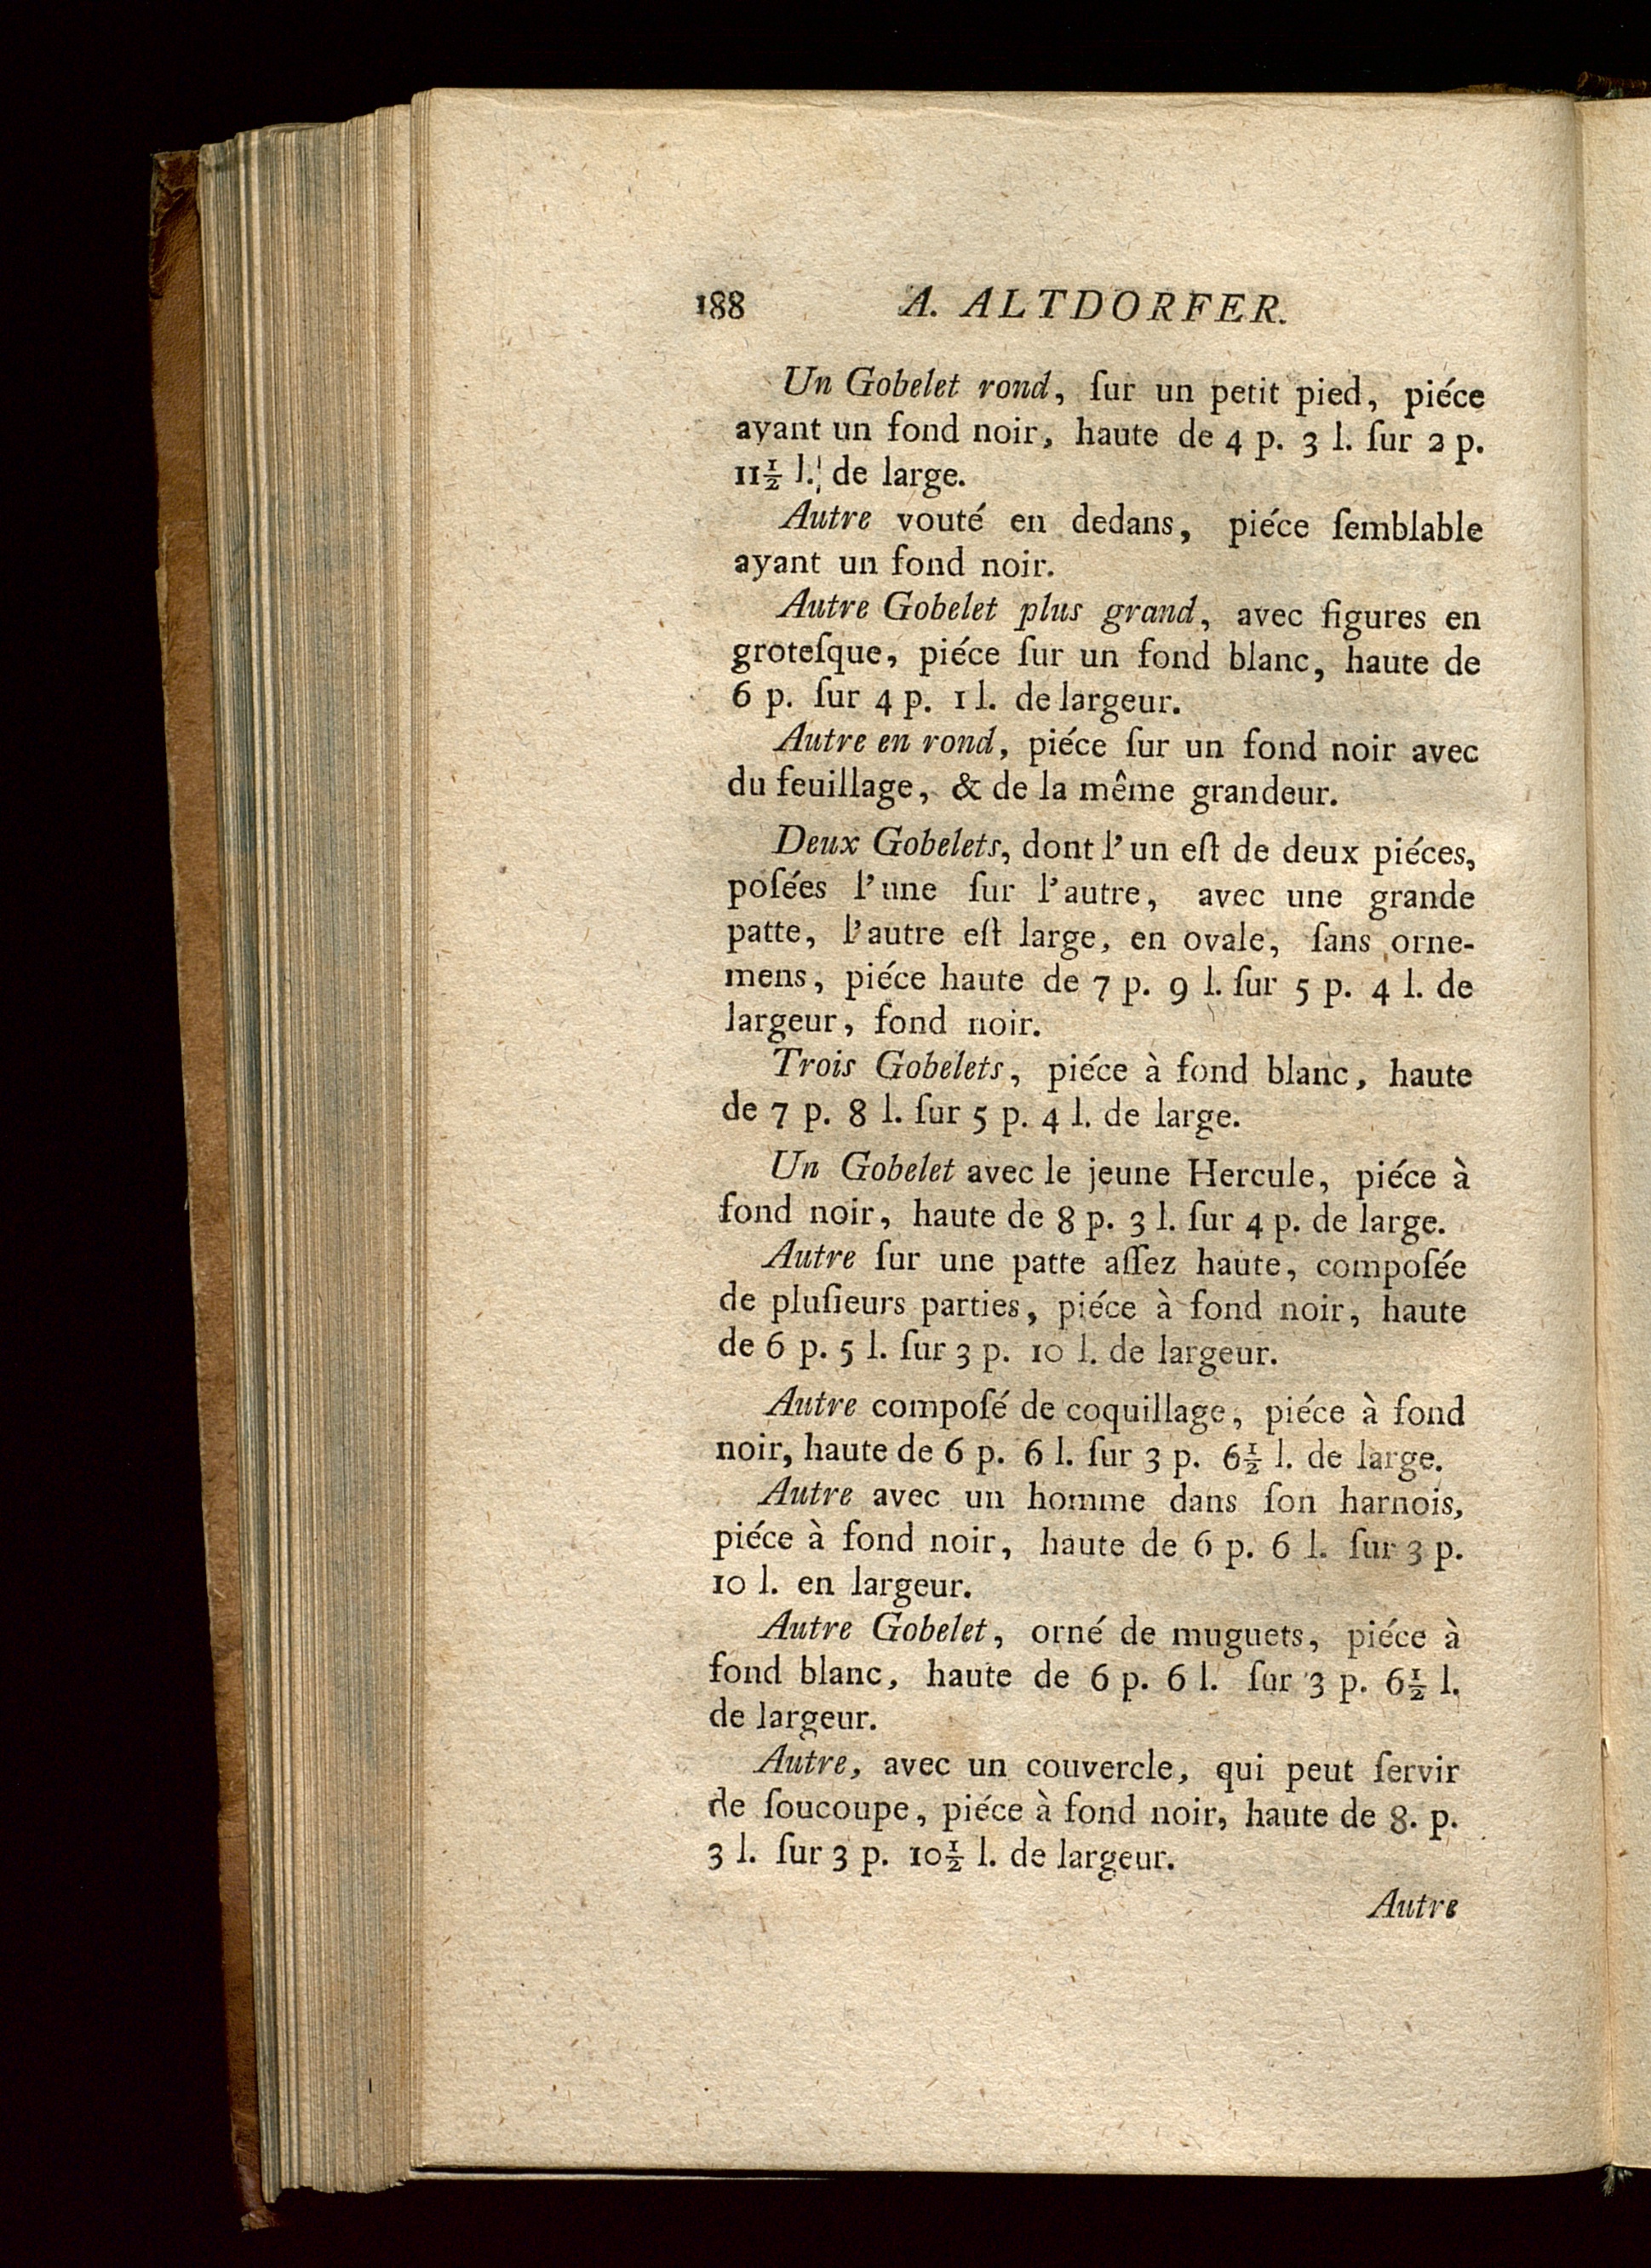 188 A. ALTDORFER.
Un Gobelet rond, ſur un petit pied, piéce
ayant un fond noir, haute de 4 p. 3 l. ſur 2 p.
11½ l. de large.
Autre vouté en dedans, piéce ſemblable
ayant un fond noir.
Autre Gobelet plus grand, avec figures en
groteſque, piéce ſur un fond blanc, haute de
6 p. ſur 4 p. 1 l. de largeur.
Autre en rond, piéce ſur un fond noir avec
du feuillage, & de la même grandeur.
Deux Gobelets, dont l'un eſt de deux piéces,
poſées l'une ſur l'autre, avec une grande
patte, l'autre eſt large, en ovale, ſans orne-
mens, piéce haute de 7 p. 9 l. ſur 5 p. 4 l. de
largeur, fond noir.
Trois Gobelets, piéce à fond blanc, haute
de 7 p. 8 l. ſur 5 p. 4 l. de large.
Un Gobelet avec le jeune Hercule, piéce à
fond noir, haute de 8 p. 3 l. ſur 4 p. de large.
Autre ſur une patte aſſez haute, compoſée
de pluſieurs parties, piéce à fond noir, haute
de 6 p. 5 l. ſur 3 p. 10 l. de largeur.
Autre compoſé de coquillage, piéce à fond
noir, haute de 6 p. 6 l. ſur 3 p. 6½ l. de large.
Autre avec un homme dans ſon harnois,
piéce à fond noir, haute de 6 p. 6 l. ſur 3 p.
10 l. en largeur.
Autre Gobelet, orné de muguets, piéce à
fond blanc, haute de 6 p. 6 l. ſur 3 p. 6½ l.
de largeur.
Autre, avec un couvercle, qui peut ſervir
de ſoucoupe, piéce à fond noir, haute de 8. p.
3 l. ſur 3 p. 10½ l. de largeur.
Autre